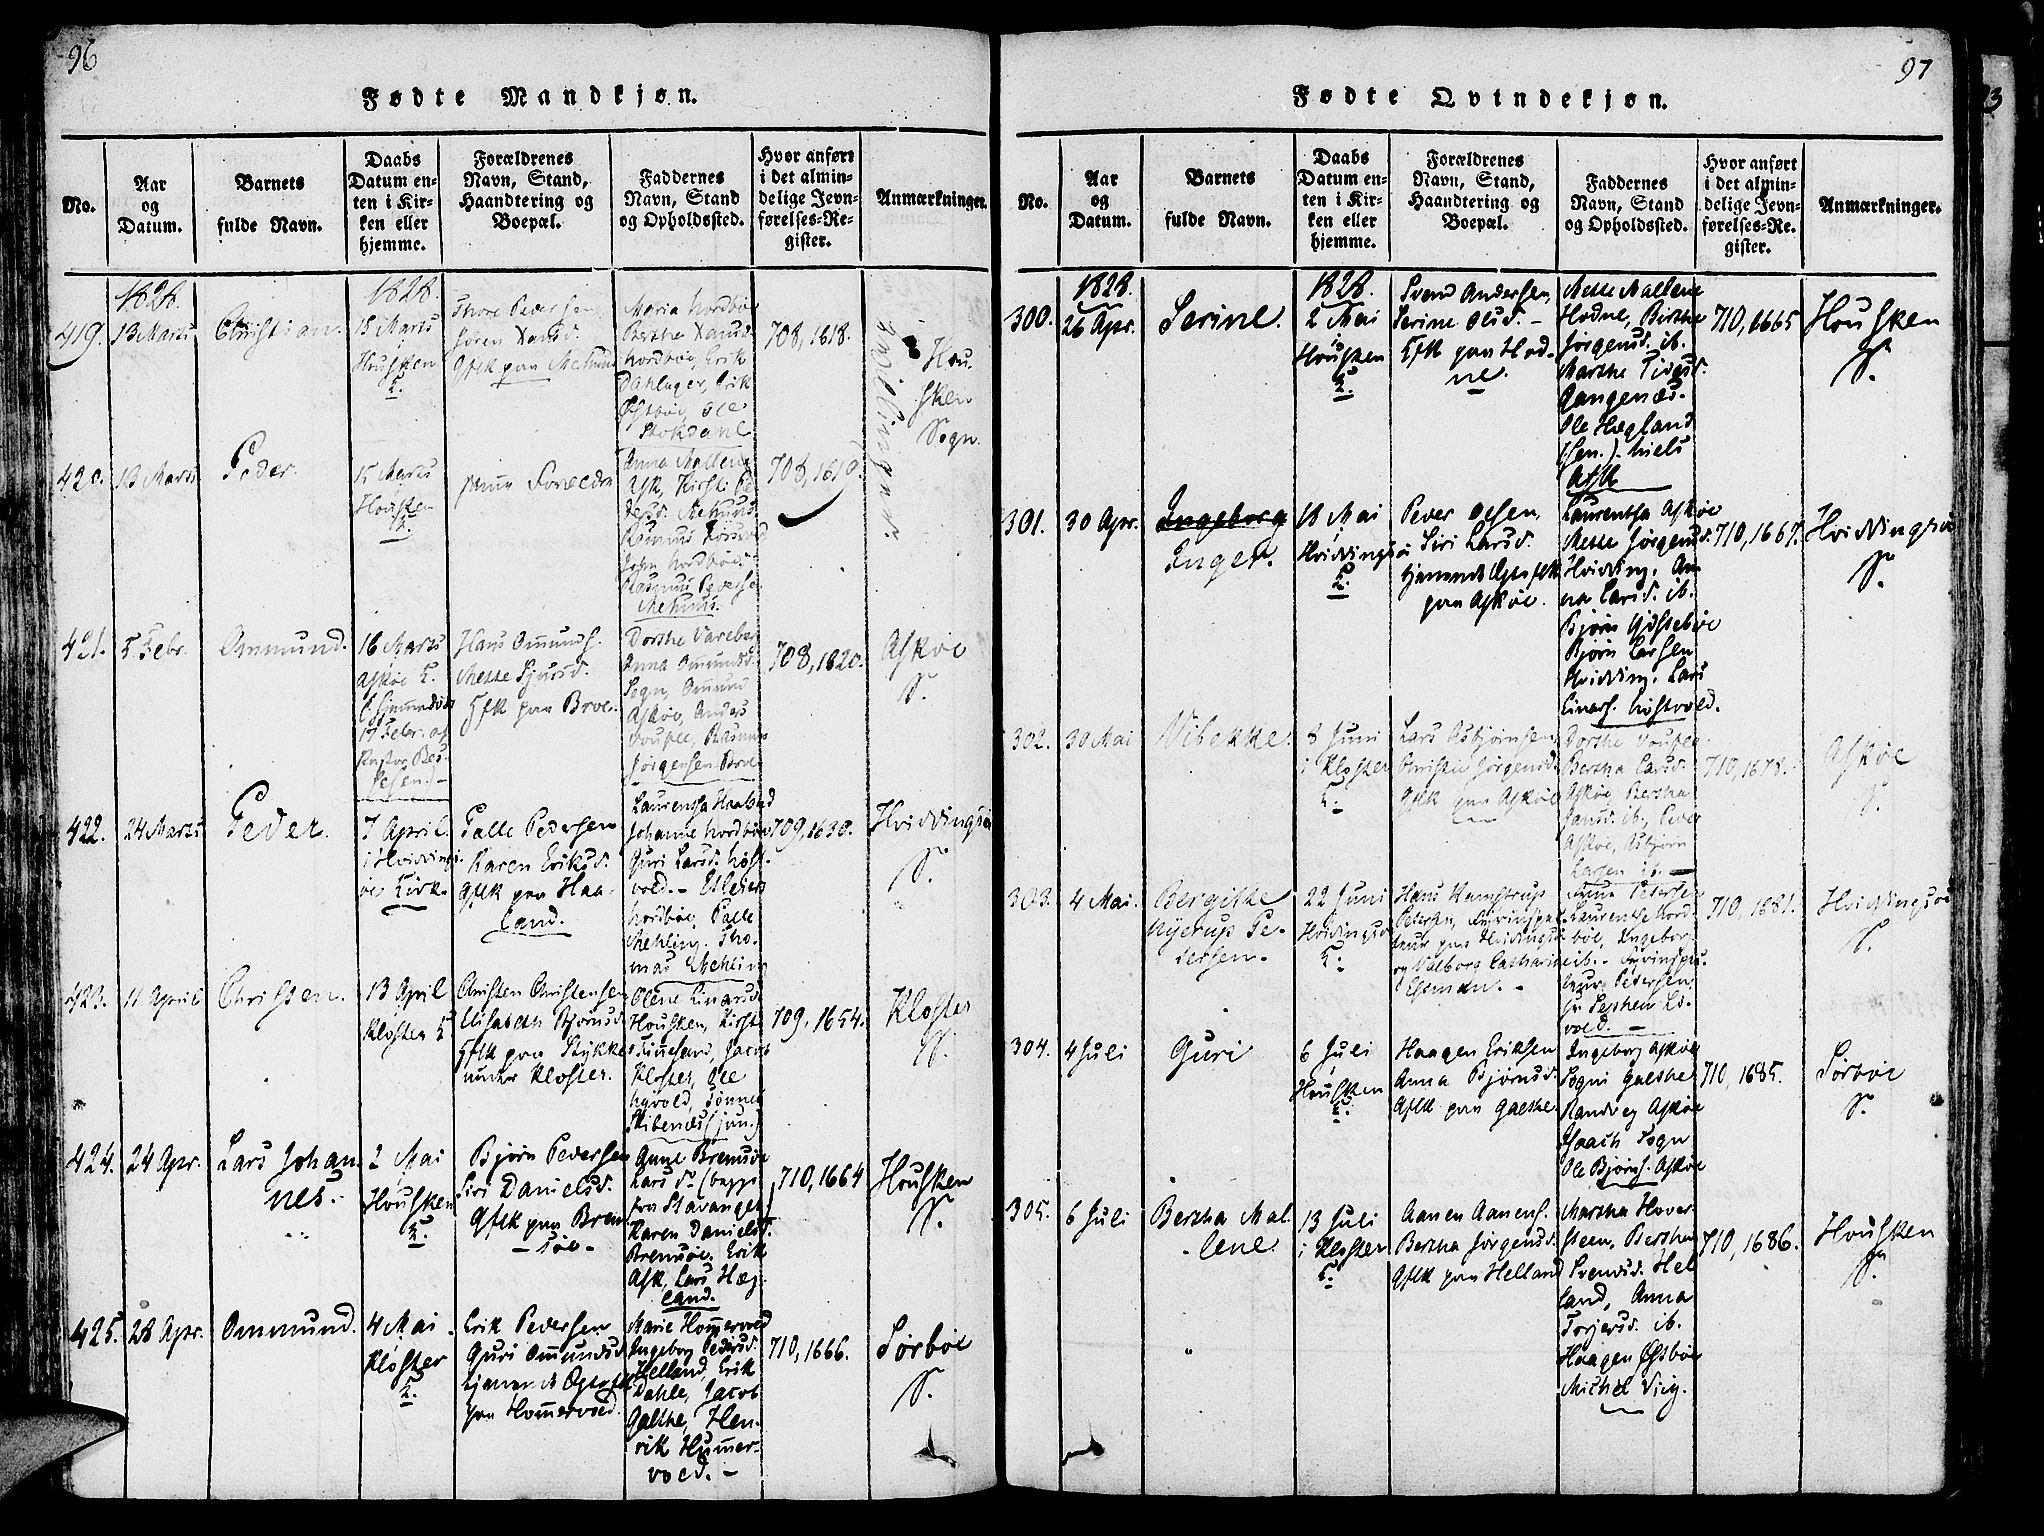 96
Fødte Mandkjøn.
No.
Aar
og
Datum.
Barnets
fulde Navn.
Daabs
Datum en-
ten i Kir-
ken eller
hjemme.
Forældrenes
Navn, Stand,
Haandtering og
Boepæl.
Faddernes
Navn, Stand
og Opholdssted.
Hvor anført
i det almin-
delige Jevn-
førelses-Re-
gister.
Anmærkninger.
1828.
419. 13 Marts
Christian.
1828.
15 Marts
Houskeen
K.
Thore Pedersen
Søren Hansd.
Gflk paa Mehuus
Maria Nordbøe
Berthe Hansd.
Nordbøe, Erik
Dahlager, Erik
Østbøe, Ole
Stokdahl
708, 1618.
Tvillinger.
Hou-
sken
Sogn.
420. 13 Marts
Peder.
15 Marts
Housken
K.
samme Forældre
Anna Mallene
Ask, Kirsti Pe-
dersd. Mehuus
Rasmus
John Nordbøe
Rasmus Pedersen
Mehuus.
708, 1619.
421. 5 Febr.
Ommund.
16 Marts
Askøe K.
(hjemmedøbt
17 Febr. af
Pastor
Hans Ommunds.
Mette Sjursd.
Gflk paa Broe
Dorthe Vareberg
Anna Ommundsd.
Sogn, Ommund
Askøe, Anders
Voulle, Rasmus
Jørgensen Broe
708, 1620.
Askøe
S.
422. 24 Marts
Peder.
7 April.
i Hviddings-
øe Kirke
Palle Pedersen
Karen Eriksd.
Gflk paa Haa-
land.
Laurentsa Haaland
Johanne Nordbøe
Guri Larsd. Nøst-
vold. - Elleiers
Nordbøe, Palle
Mehling. Tho-
mas Mehling
709, 1630.
Hviddingsøe
S.
423. 11 April
Christen.
13 April
Kloster K.
Christen Christensen
Elisabeth Bjørnsd.
Gflk paa Stykket
under Kloster.
Olene Einarsd.
Housken, Kirsti
Finnesand, Jacob
Kloster, Ole
Nyvold, Tønnes
Skibenæs (jun.)
709, 1654.
Kloster
S.
424. 24 Apr.
Lars Johan-
nes.
2 Mai
Housken
K.
Bjørn Pedersen
Siri Danielsd.
Gflk paa Brem-
- søe -
Anne Bremsøe
Lars do. (begge
fra Stavanger)
Karen Danielsd.
Bremsøe, Erik
Ask, Lars Hæg-
land.
710, 1664
Housken
S.
425. 28 Apr.
Ommund.
4 Mai
Kloster
K.
Erik Pedersen
Guri Ommundsd.
tjenende Ægtefolk
paa Hommervold.
Marie Hommervold
Ingeborg Pedersd.
Helland, Erik
Dahle, Jacob
Galthe, Hen-
rik Hummer-
vold. -
710, 1666.
Sørbøe
S.
97
Fødte Qvindekjøn.
No.
Aar
og
Datum.
Barnets
fulde Navn.
Daabs
Datum en-
ten i Kir-
ken eller
hjemme.
Forældrenes
Navn, Stand,
Haandtering og
Boepæl.
Faddernes
Navn, Stand
og Opholdssted.
Hvor anført
i det almin-
delige Jevn-
førelses-Re-
gister.
Anmærkninger.
1828.
300. 26 Apr.
Serine.
1828.
2 Mai
Housken
K.
Svend Andersen,
Serine Olsd. -
Gflk paa Hod-
ne.
Mette Mallene
Hodne, Berthe
Jørgensd. ib.
Marthe
Gangenæs.
Ole Hægland
(sen.). Niels
Ask
710, 1665
Housken
S.
301. 30 Apr.
Ingeborg
Inger.
18 Mai
Hviddingsøe
K.
Peder Olsen,
Siri Larsd.
tjenende Ægtefolk
paa Askøe.
Laurentsa Askøe
Mette Jørgensd.
Hvidding. An-
na Larsd. ib.
Bjørn Ydstebøe
Bjørn Larsen
Hvidding. Lars
Einars. Nøstvold.
710, 1667.
Hviddingsøe
S.
302. 30 Mai
Vibekke.
8 Juni
i Kloster
K.
Lars Asbjørnsen
Christie Jørgensd.
Gflk paa Askøe
Dorthe Voulle
Bertha Larsd.
Askøe, Bertha
Jansd. ib., Peder
Askøe, Asbjørn
Larsen ib. -
710, 1678.
Askøe
S.
303. 4 Mai.
Bergithe
Nyerup Pe-
tersen.
22 Juni
Hviddingsøe
K.
Hans Kamstrup
Petersen,
paa Hviddingsøe
og Valborg Catharine
Esman. -
Anna Petersen
Laurentse Nord-
bøe, Ingeborg
ib. -
Petersen,
Sr. Stephen Lo-
voed. -
710, 1681.
Hviddingsøe
S.
304. 4 Juli
Guri
6 Juli
Housken
K.
Haagen Eriksen
Anna Bjørnsd.
Gflk paa Galthe
Ingeborg Askøe
Sogni Galthe
Randveg Askøe
Isaach Sogn
Ole Bjørns. Askøe
710, 1685.
Sørbøe
S.
305. 6 Juli
Bertha Mal-
lene.
13 Juli
i Kloster
K.
Aanen Aanens.
Bertha Jørgensd.
Gflk paa Helland
Martha Hover-
steen, Bertha
Svendsd. Hel-
land, Anna
Torjersd. ib.
Haagen Østbøe
Michel Viig.
710, 1686.
Housken
S.